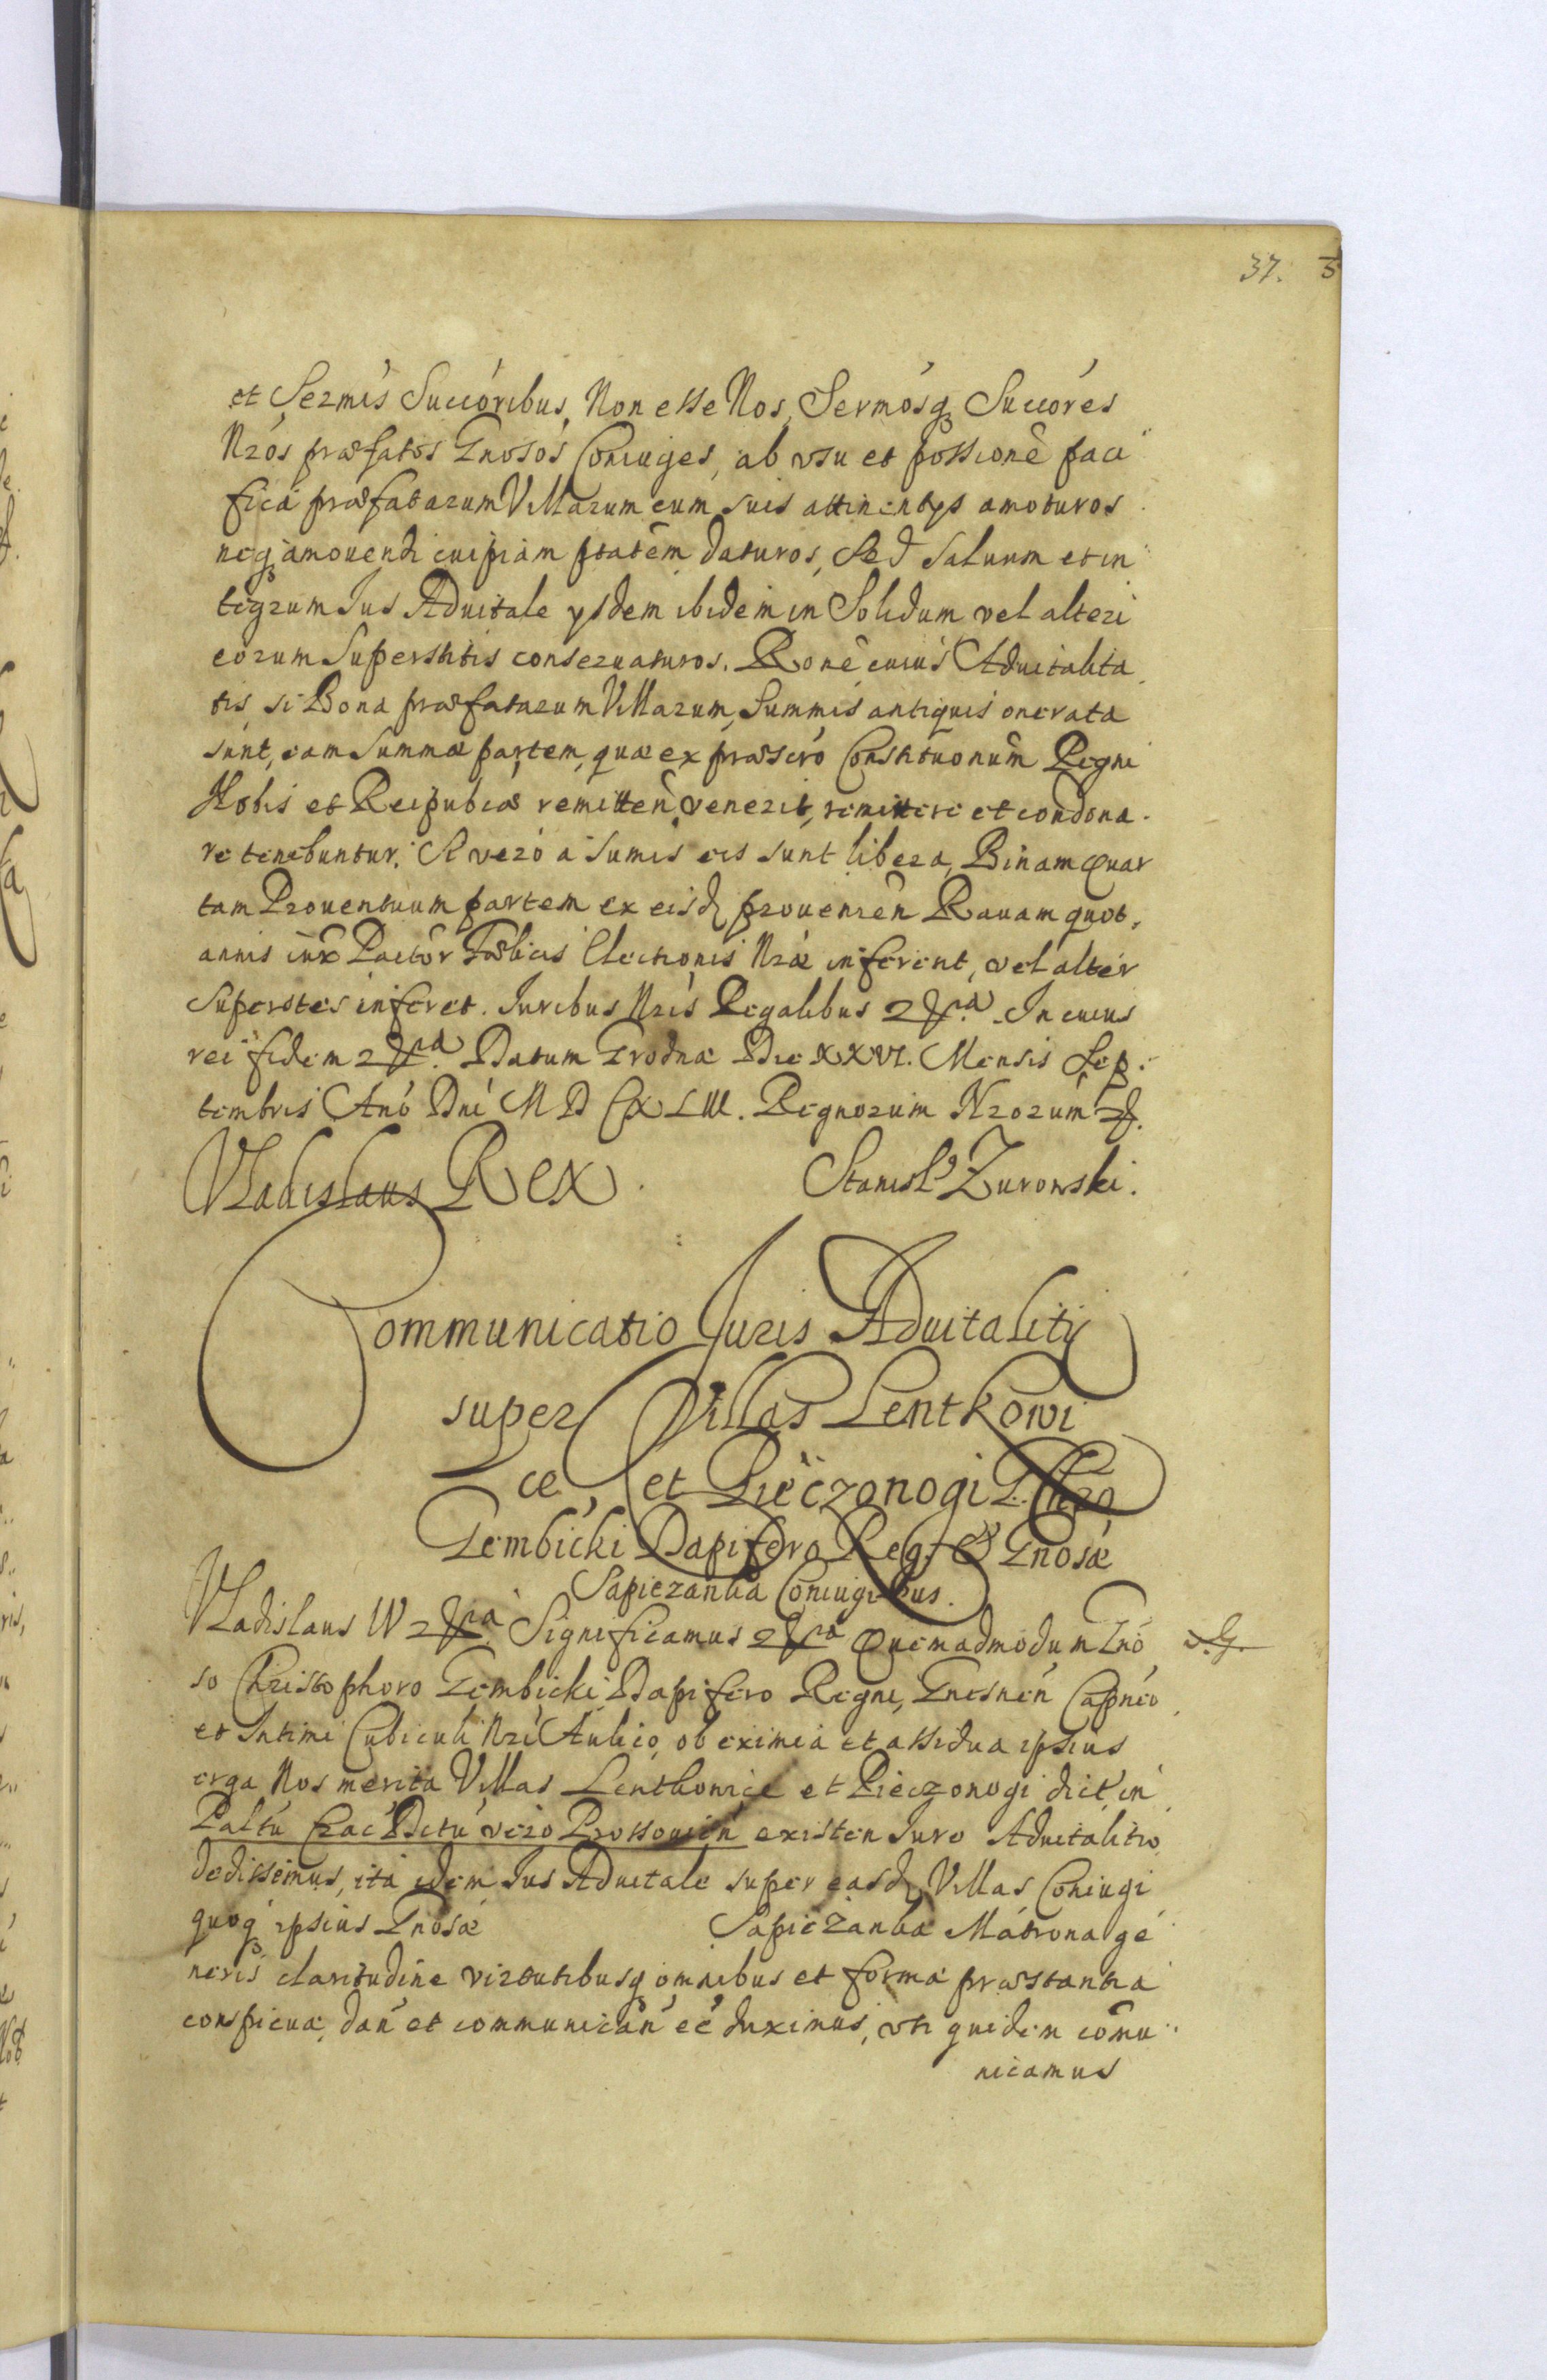 37. 3
et Sermis Succoribus, Non esse Nos, Sermosq Succores
Nros præfatos Gnosos Coniuges, ab vsu et possione paci
fica præfatarum Villarum cum suis attinentys amoturos
neq amouendi cuipiam ptatem daturos, Sed Saluum et in
tegrum Ius Aduitale ysdem ibidem in Solidum vel alteri
eorum Superstitis conseruaturos. Rone cuius Aduitalita
tis, si Bona præfatarum Villarum, Summis antiquis onerata
sunt, eam Summæ partem, quæ ex præscro Constituonum Regni
Nobis et Reipubcæ remitten venerit, remittere et condona
re tenebuntur. Si vero a sumis eis sunt libera, Binam quar
tam Prouentuum partem ex eisd prouenien Rauam quot
annis iux Pactor Fælicis Electionis Nræ inferent, vel alter
Superstes inferet. Iuribus Nris Regalibus &ra. In cuius
rei fidem &ra. Datum Grodnæ Die XXVI. Mensis Sep
tembris Ano Dni M D CXLIII. Regnorum Nrorum &.
Vladislaus Rex. Stanisl Zurowski.
Communicatio Iuris Aduitalitij
super Villas Lentkowi
ce, et Pieczonogi G. Chro
Gembicki Dapifero Reg: & Gnosæ
Sapiezanka Coniugibus.
Vladislaus IV &ra. Significamus &ra Quemadmodum Gno
so Christophoro Gembicki Dapifero Regni, Gnesnen Capneo
et Intimi Cubiculi Nri Aulico, ob eximia et assidua ipsius
erga Nos merita Villas Lentkowice et Pieczonogi dict in
Paltu Crac Dctu vero Prossouien existen Iure Aduitalitio
dedissemus, ita idem Ius Aduitale super easd Villas Coniugi
quoq ipsius Gnosæ Sapieżanka Matrona ge
neris claritudine virtutibusq omnibus et forma præstantia
conspicua, dan et communican ee duximus, vti quidem comu
nicamus